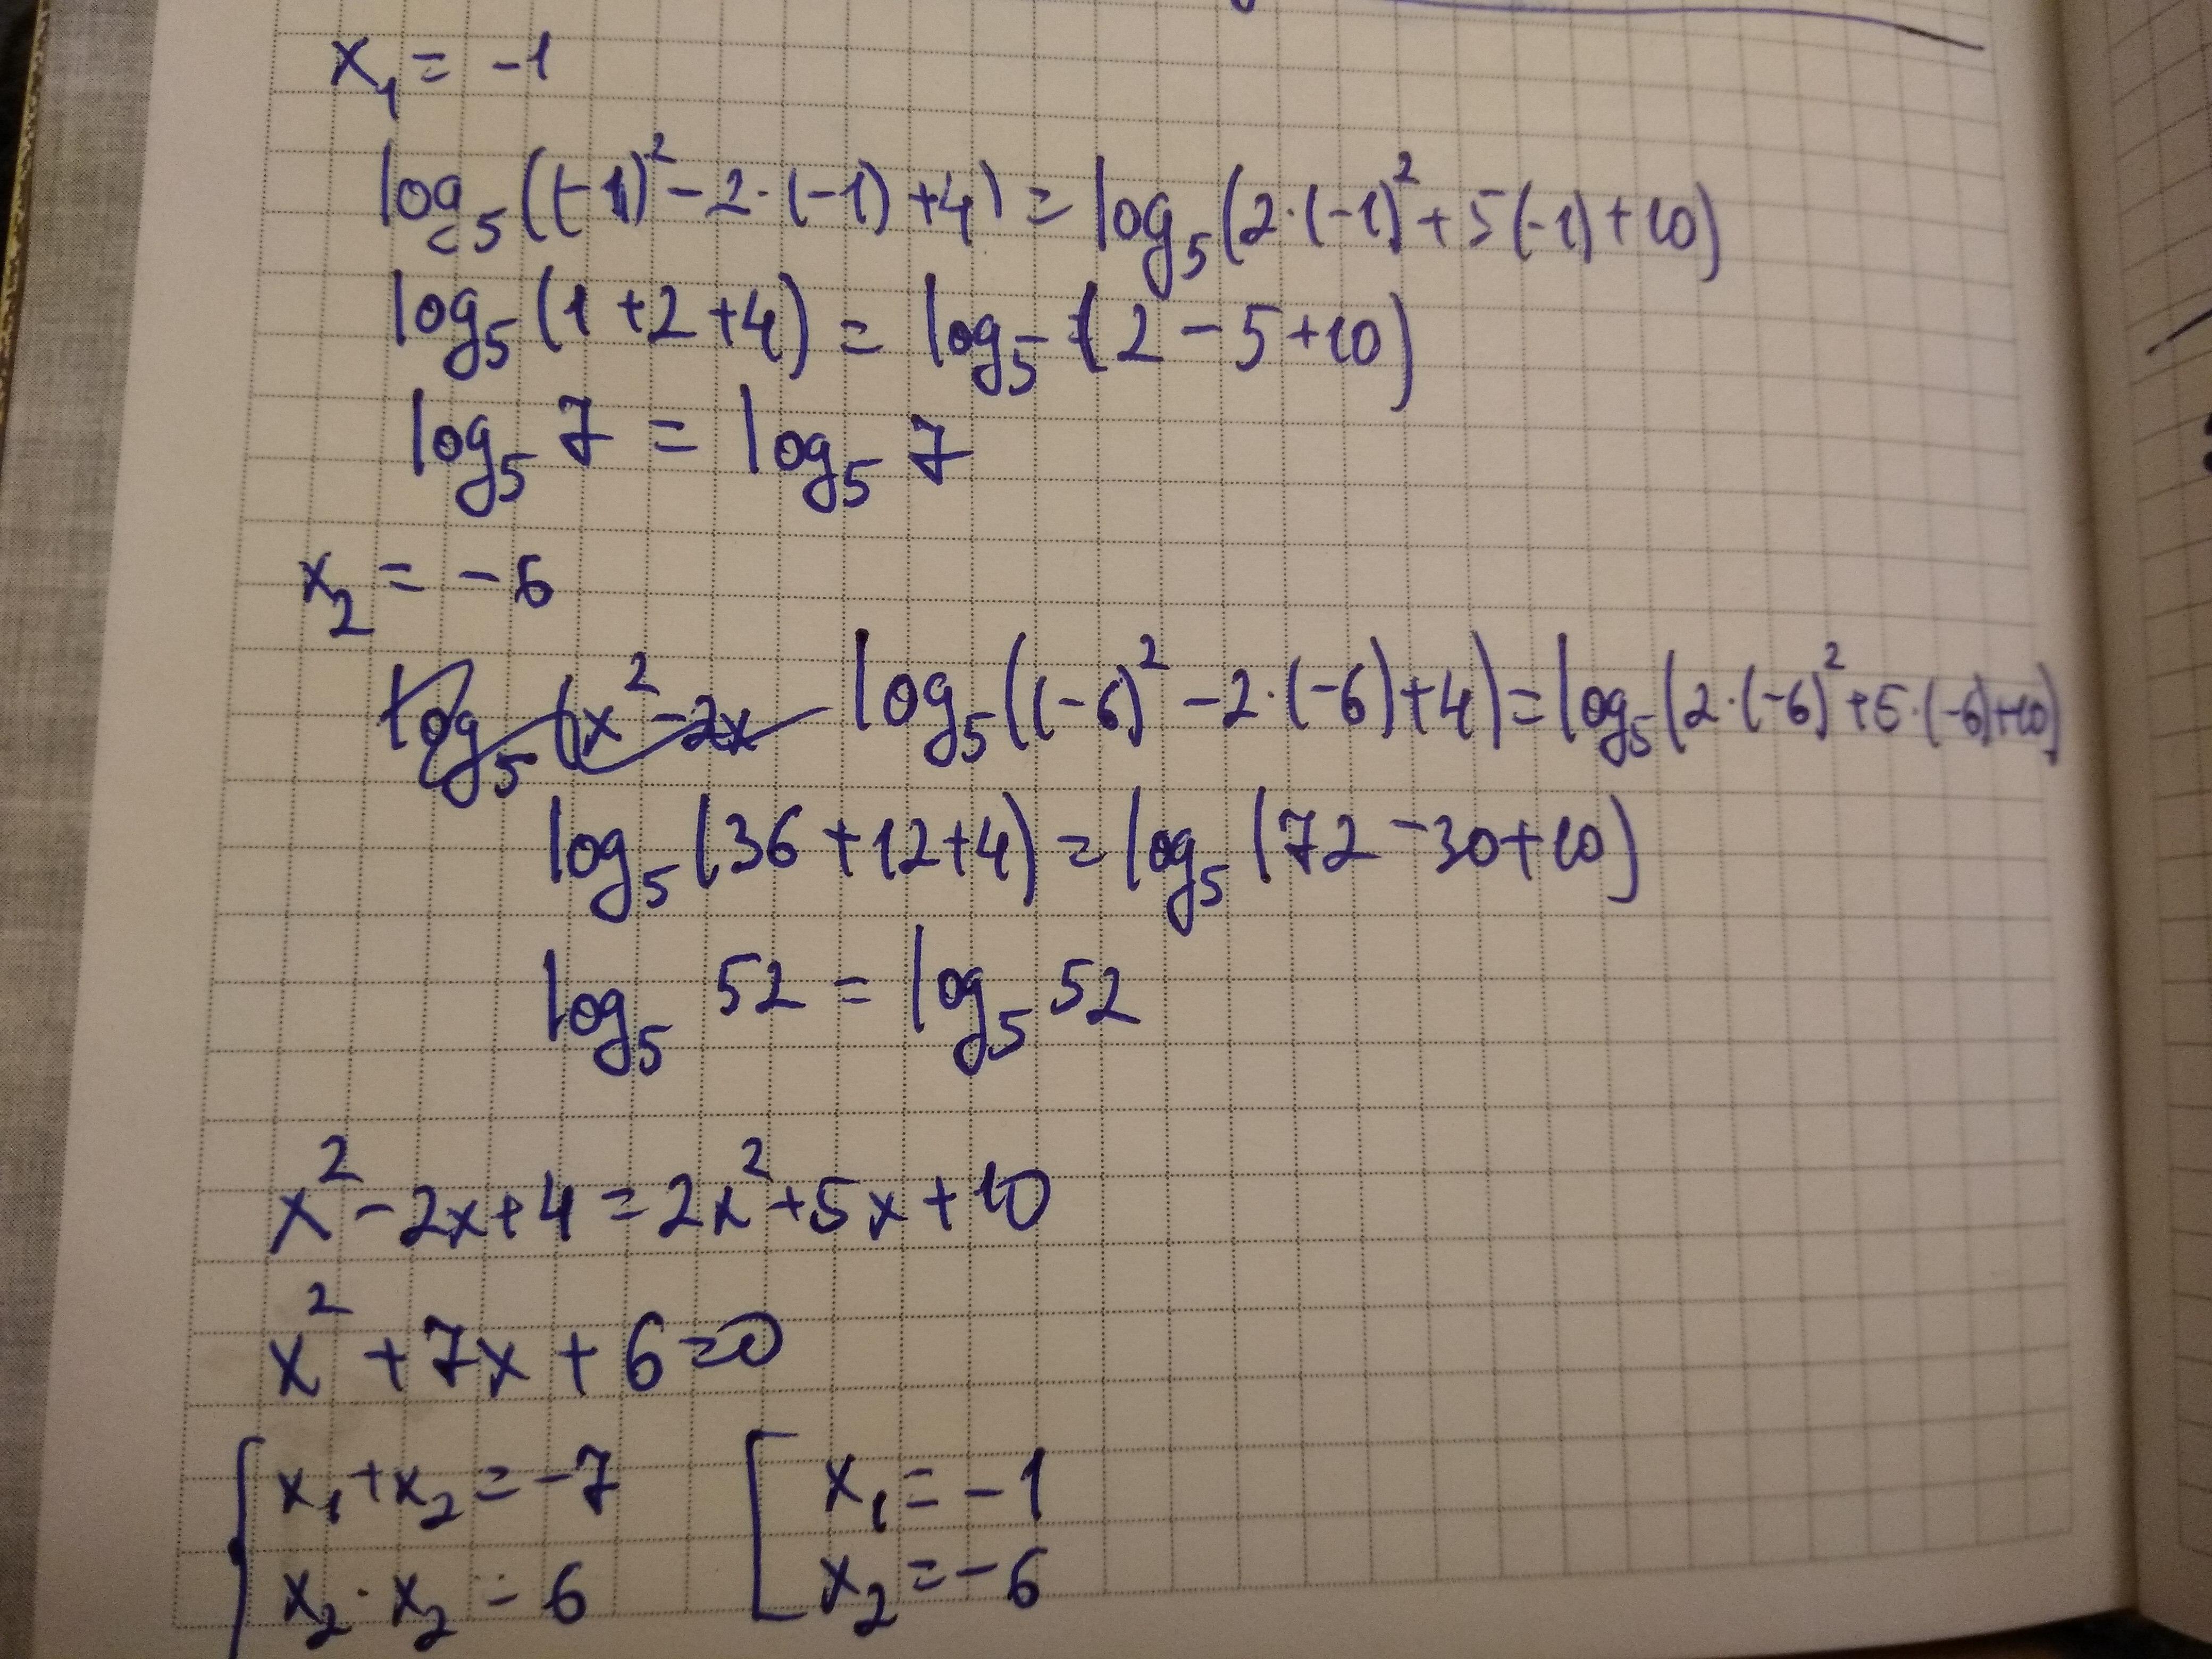 x₁ = -1
log₅((-1)² - 2·(-1) + 4) = log₅(2·(-1)² + 5(-1) + 10)
log₅(1 + 2 + 4) = log₅(2 - 5 + 10)
log₅ 7 = log₅ 7
x₂ = -6
log₅(x² - 2x log₅((-6)² - 2·(-6) + 4) = log₅(2·(-6)² + 5·(-6) + 10)
log₅(36 + 12 + 4) = log₅(72 - 30 + 10)
log₅ 52 = log₅ 52
x² - 2x + 4 = 2x² + 5x + 10
x² + 7x + 6 = 0
{ x₁ + x₂ = -7 [ x₁ = -1
x₂ · x₂ = 6 x₂ = -6